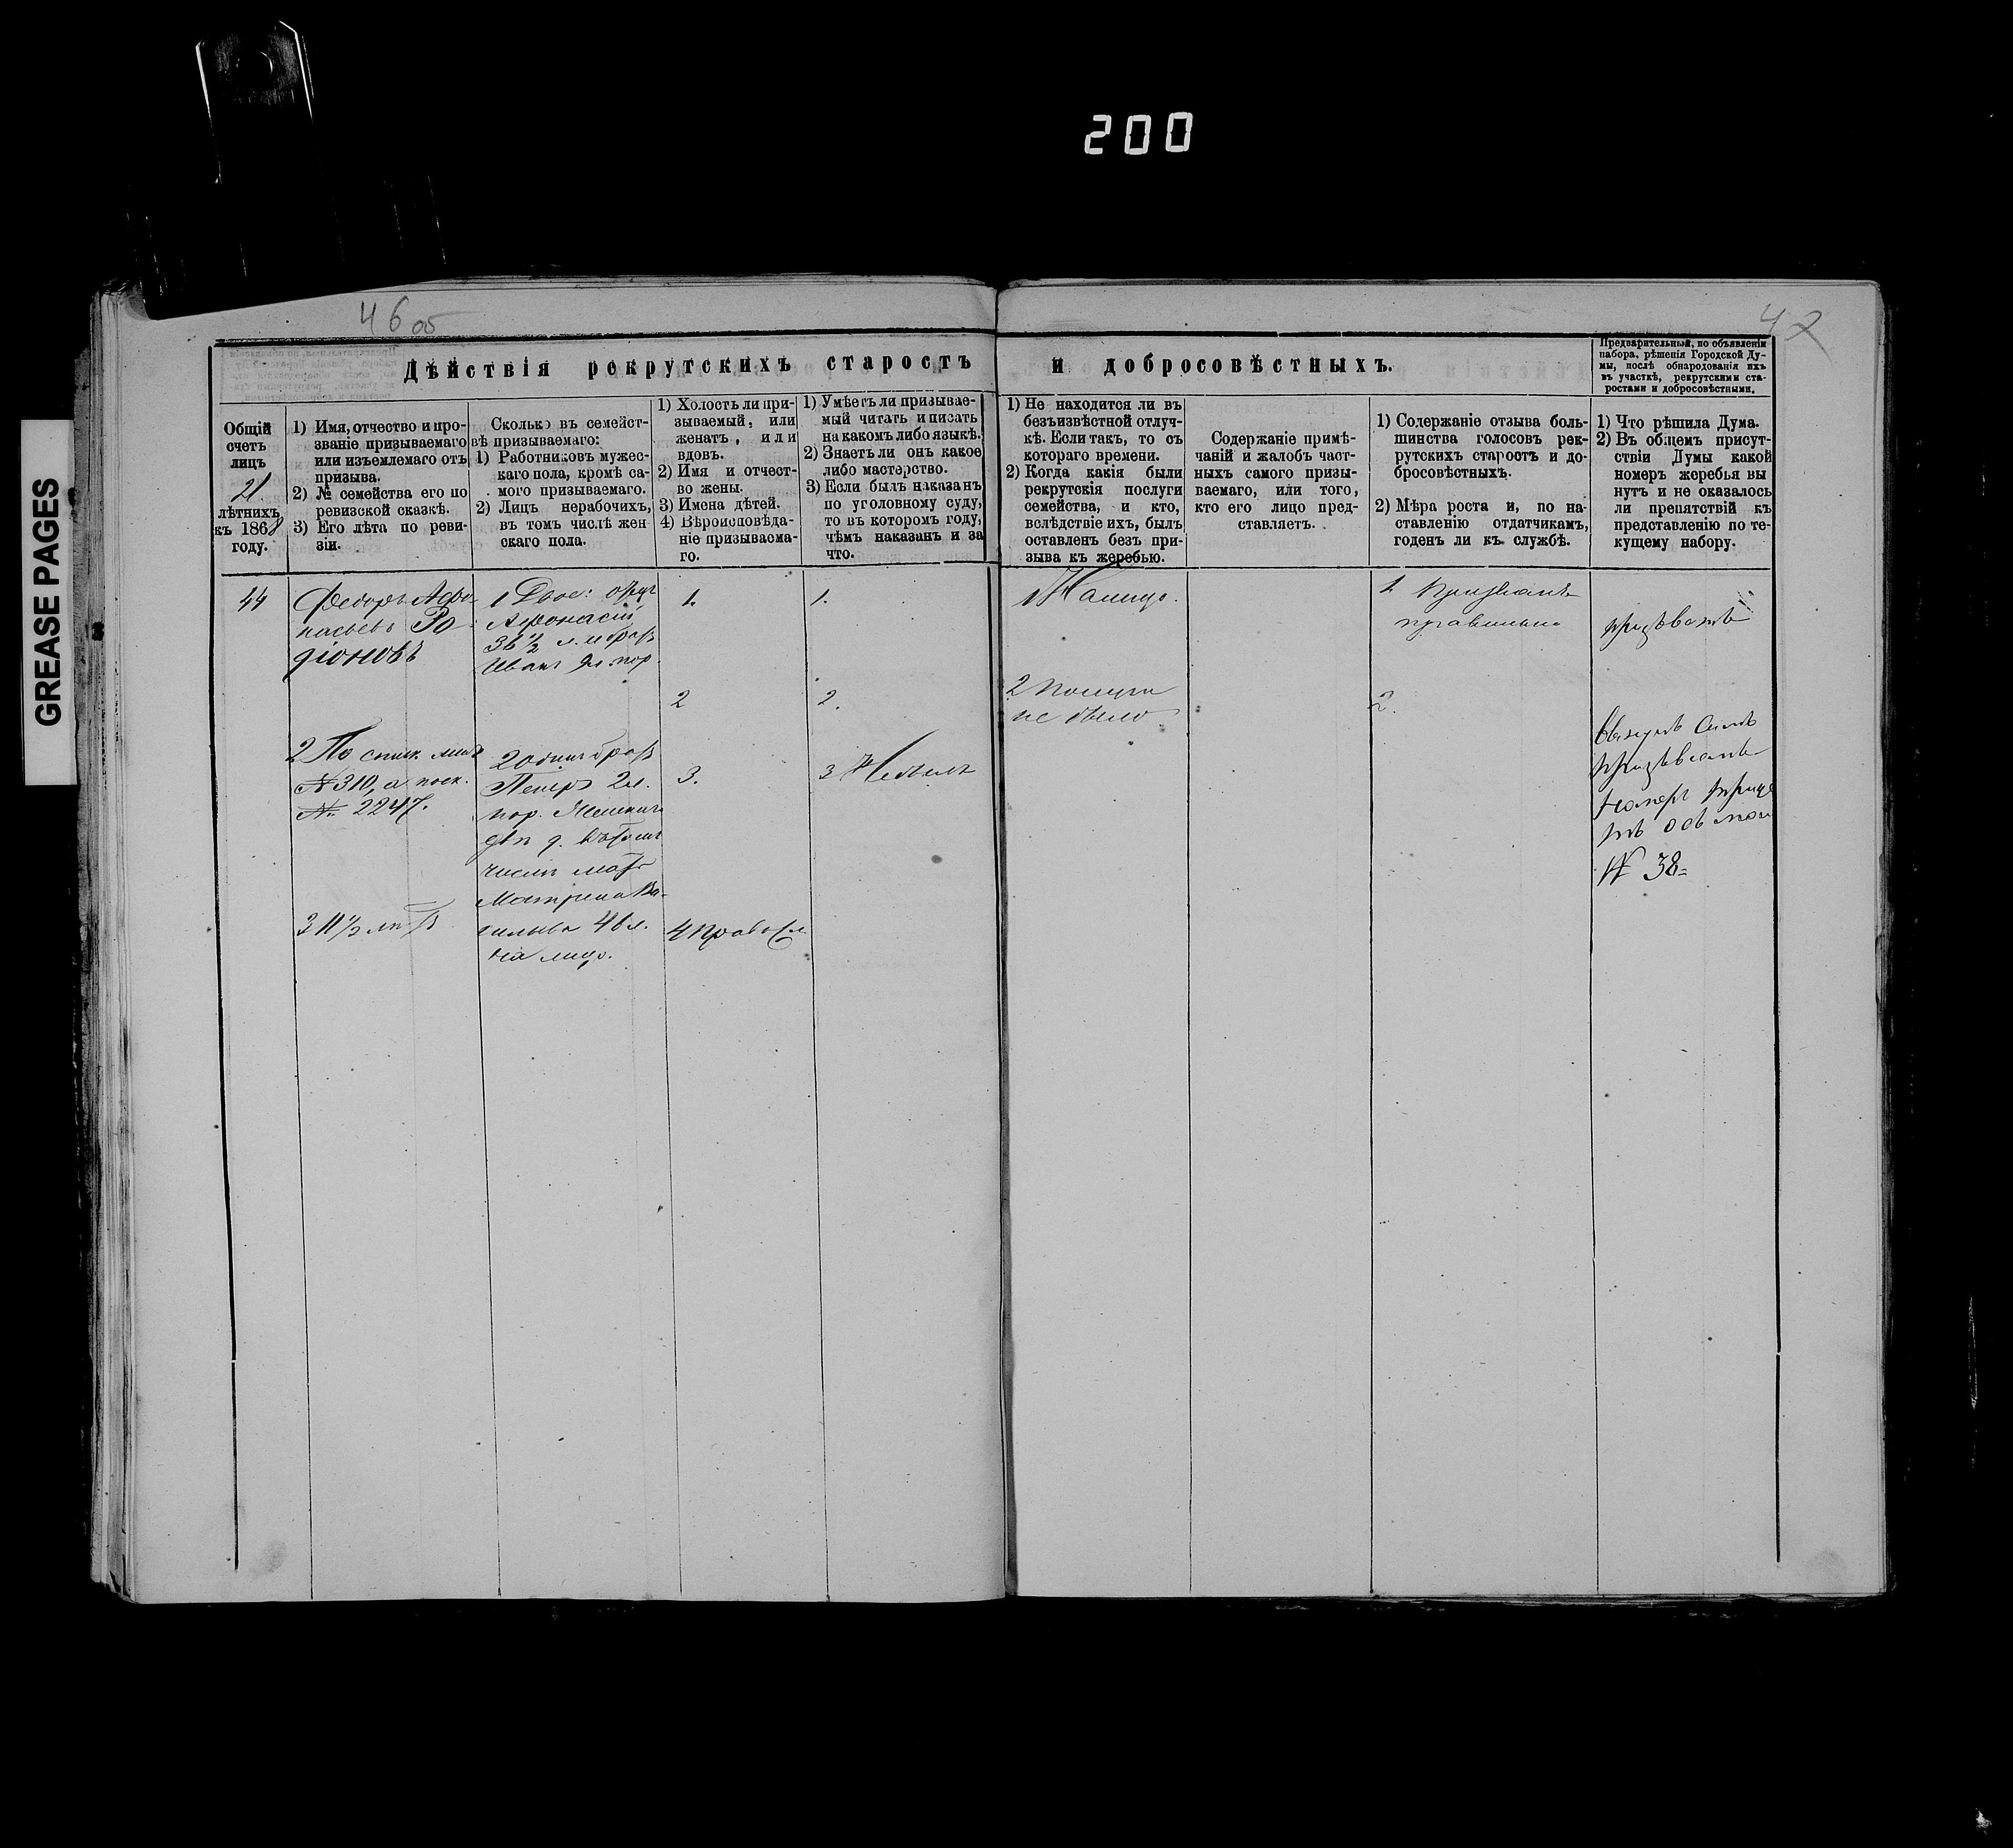 200
GREASE PAGES
46 об
47
Дѣйствія рекрутскихъ старостъ и добросовѣстныхъ.
Предварительныя, по объявленіи
набора, рѣшенія Городской Ду-
мы, послѣ обнародованія ихъ
въ участкѣ, рекрутскими ста-
ростами и добросовѣстными.
Общій
счетъ
лицъ
21
лѣтнихъ
къ 1868
году.
1) Имя, отчество и про-
званіе призываемаго
или изъемлемаго отъ
призыва.
2) № семейства его по
ревизской сказкѣ.
3) Его лѣта по реви-
зіи.
Сколько въ семейст-
вѣ призываемаго:
1) Работниковъ мужес-
каго пола, кромѣ са-
мого призываемаго.
2) Лицъ нерабочихъ,
въ томъ числѣ жен
скаго пола.
1) Холостъ ли при-
зываемый, или
женатъ, или
вдовъ.
2) Имя и отчест-
во жены.
3) Имена дѣтей.
4) Вѣроисповѣда-
ніе призываема-
го.
1) Умѣетъ ли призывае-
мый читать и писать
на какомъ либо языкѣ.
2) Знаетъ ли онъ какое
либо мастерство.
3) Если былъ наказанъ
по уголовному суду,
то въ которомъ году,
чѣмъ наказанъ и за
что.
1) Не находится ли въ
безъизвѣстной отлуч-
кѣ. Если такъ, то съ
котораго времени.
2) Когда какія были
рекрутскія послуги
семейства, и кто,
вслѣдствіе ихъ, былъ
оставленъ безъ при-
зыва къ жеребью.
Содержаніе примѣ-
чаній и жалобъ част-
ныхъ самого призы-
ваемаго, или того,
кто его лицо пред-
ставляетъ.
1) Содержаніе отзыва боль-
шинства голосовъ рек-
рутскихъ старостъ и до-
бросовѣстныхъ.
2) Мѣра роста и, по на-
ставленію отдатчикамъ,
годенъ ли къ службѣ.
1) Что рѣшила Дума.
2) Въ общемъ присут-
ствіи Думы какой
номеръ жеребья вы
нутъ и не оказалось
ли препятствій къ
представленію по те-
кущему набору.
44
Федоръ Афо-
насьевъ Ро
діоновъ
2 По спис. мѣщ
№ 310, а поск.
№ 2247.
3 11 1/2 лѣтъ
1 Двое: отецъ
Афонасій
36 1/2 л. и братъ
Иванъ 9 л. пор.
2 одинъ братъ
Петръ 2 л.
пор. Женскаго
двѣ д. въ томъ
числѣ мать
Матрена Ва-
сильева 46 л.
на лицо.
1.
2
3.
4 Правосл.
1.
2.
3 Небылъ
1 Налицо.
2 Послуги
не было
1. Призванъ
правильно
2.
призвать
Вынутъ самъ
призваннымъ
номеръ трид
ть осьмой
№ 38